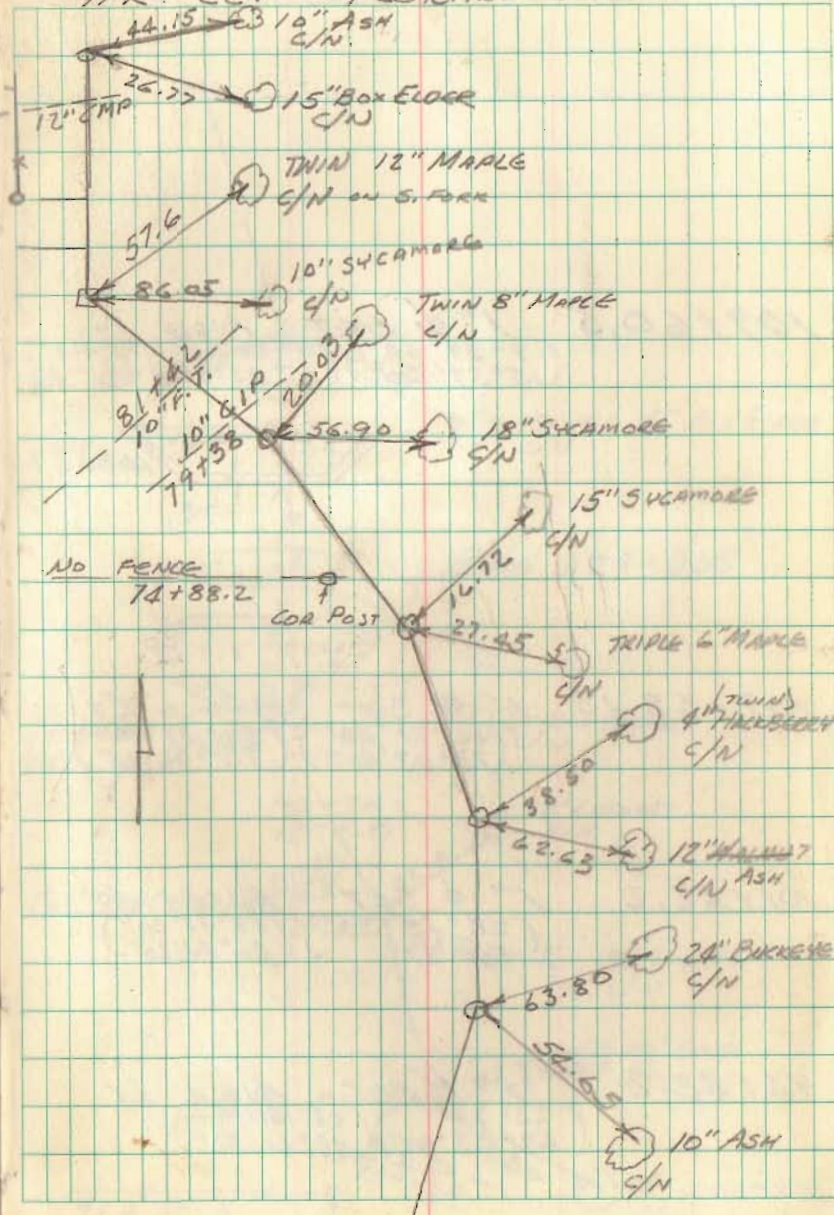 44.15
10" ASH
C/N
26.77
12" CMP
15" BOX ELDER
C/N
TWIN 12" MAPLE
C/N ON S. FORK
57.6
10" SYCAMORE
86.05
C/N
TWIN 8" MAPLE
C/N
20.03
81+42
10" F.T.
10" CIP
79+38
56.90
18" SYCAMORE
C/N
15" SYCAMORE
C/N
NO FENCE
74+88.2
COR POST
27.45
TRIPLE 6" MAPLE
C/N
(TWIN)
4" HACKBERRY
C/N
38.50
62.63
12" WALNUT
C/N ASH
24" BUCKEYE
C/N
63.80
54.65
10" ASH
C/N